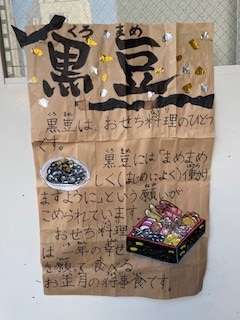 くろ まめ
黒豆
黒豆は、おせち料理のひとつ
です。
黒豆には「まめまめ
しく(まじめによく)働け
ますように」という願いが
こめられています。
おせち料理
は一年の幸せ
を願って食べる、
お正月の行事食です。